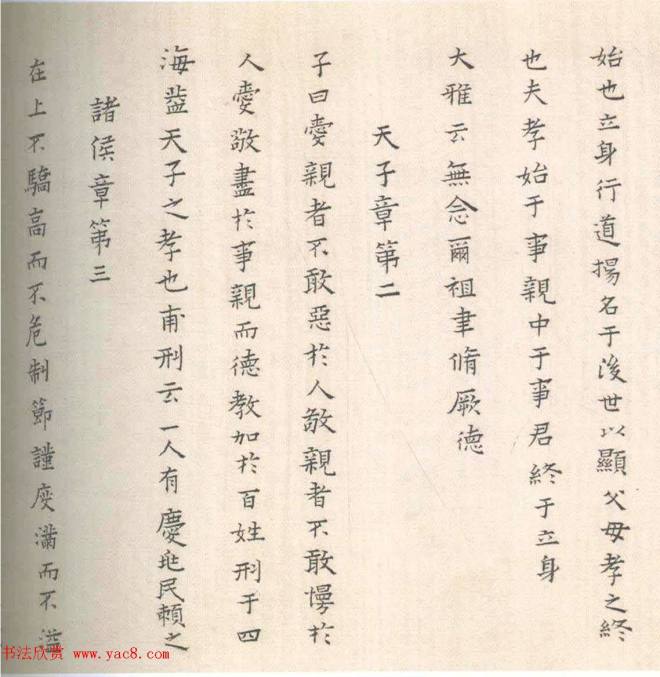 始也立身行道揚名于後世以顯父母孝之終
也夫孝始于事親中于事君終于立身
大雅云無念爾祖聿脩厥德
天子章第二
子曰愛親者不敢惡於人敬親者不敢慢於
人愛敬盡於事親而德教加於百姓刑于四
海葢天子之孝也甫刑云一人有慶兆民賴之
諸侯章第三
在上不驕高而不危制節謹度滿而不溢
书法欣赏 www.yac8.com